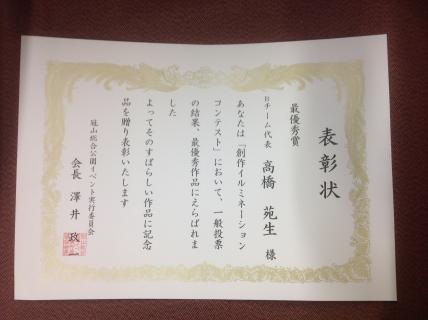 表彰状
最優秀賞
Bチーム代表 高橋 苑生 様
あなたは「創作イルミネーション
コンテスト」において、一般投票
の結果、最優秀作品にえらばれま
した
よってそのすばらしい作品に記念
品を贈り表彰いたします
冠山総合公園イベント実行委員会
会長 澤井 政一